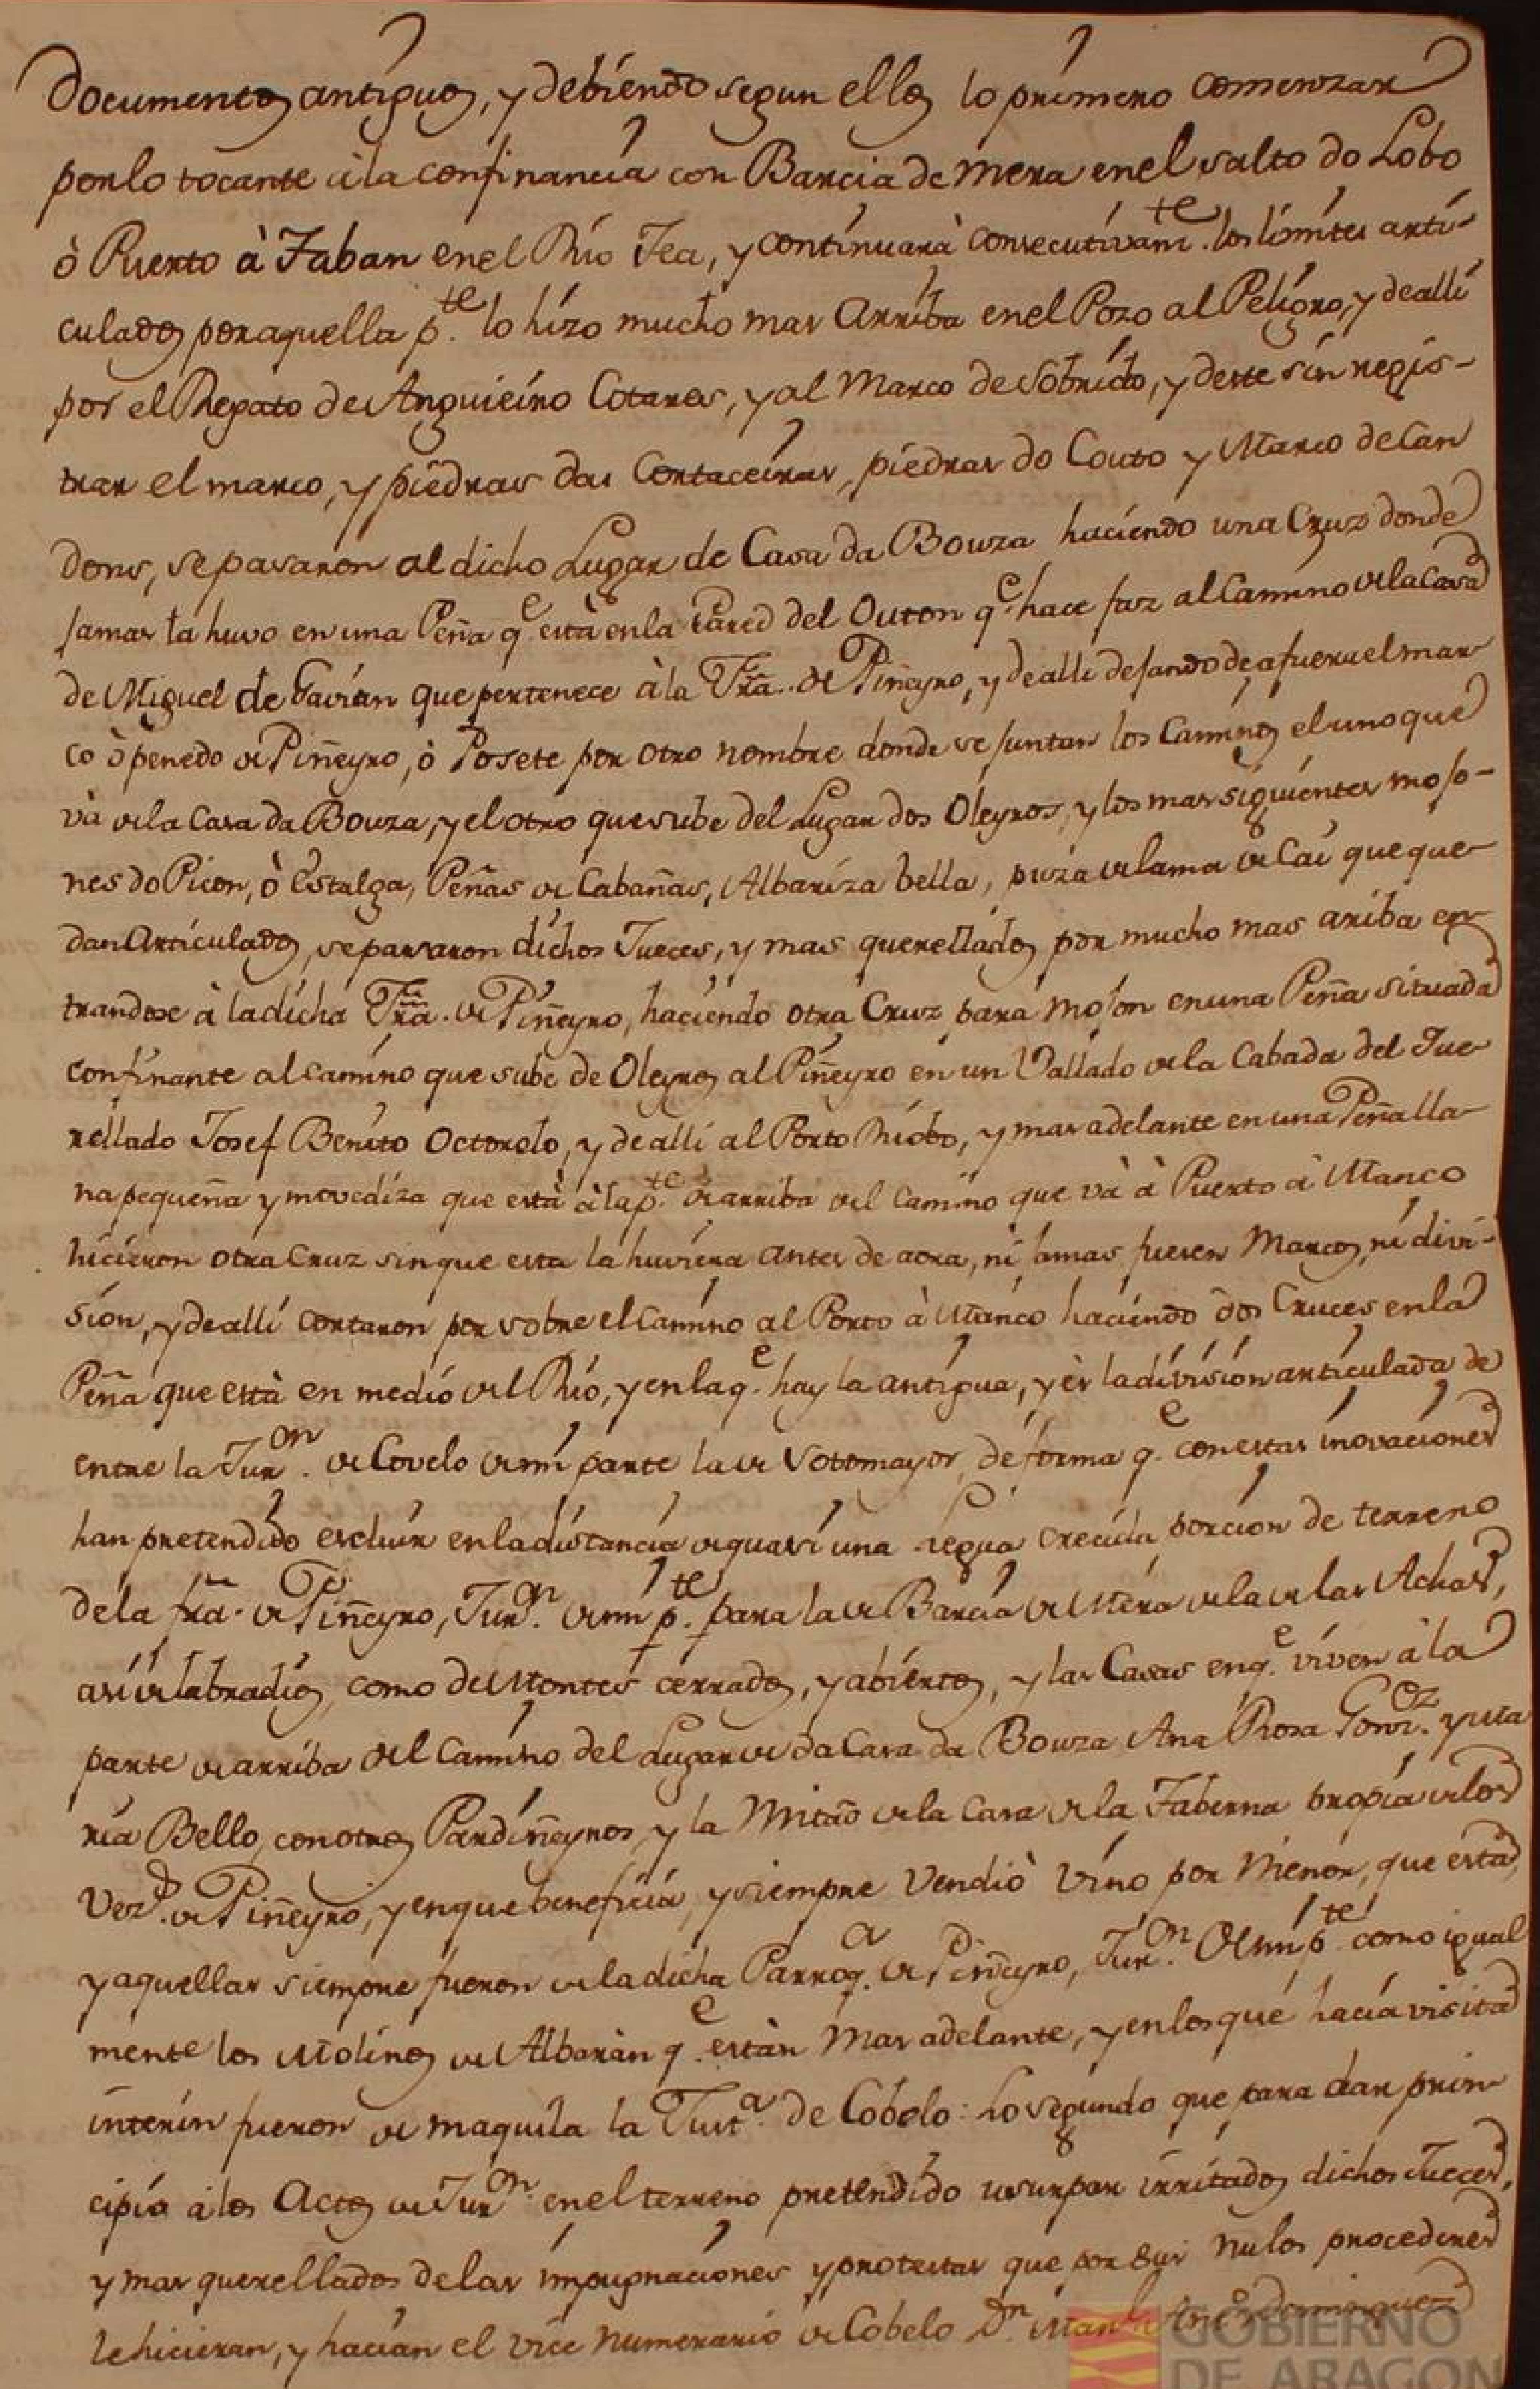 Documentos antiguos, y debiendo segun ellos lo primero comenzar
por lo tocante à la confinancia con Barcia de Mera en el salto do Lobo
ò Puerto à Faban en el Rio Tea, y continuarà consecutivamte. los limites arti-
culados por aquella pte. lo hizo mucho mas Arriba en el Pozo al Peligro, y de alli
por el Regato de Anguieiro Cotares, y al Marco de Sobrido, y deste sin regis-
trar el marco, y piedras das Cortaceiras, piedras do Couto y Marco de Can
dons, se pasaron al dicho Lugar de Casa da Bouza haciendo una Cruz donde
jamas la huvo en una Peña qe. està en la Pared del Outon qe. hace faz al Camino de la Casa
de Miguel de Gavian que pertenece à la Fra. de Piñeyro, y de alli dejando de afuera el mar
co ò penedo de Piñeyro, ò Posete por otro nombre donde se juntan los Caminos el uno que
và de la Casa da Bouza, y el otro que sube del Lugar dos Oleyros, y los mas siguientes mojo-
nes do Picon, ò Estalga, Peñas de Cabañas, Albariza bella, poza de lama de Cai que que-
dan Articulados, se pasaron dichos Jueces, y mas querellados por mucho mas ariba en-
trandose à la dicha Fra. de Piñeyro, haciendo otra Cruz para mojon en una Peña situada
confinante al camino que sube de Oleyros al Piñeyro en un Vallado de la Cabada del Que
rellado Josef Benito Octerelo, y de alli al Porto Riobo, y mas adelante en una Peña lla-
na pequeña y movediza que està à la pte. de arriba del Camino que và à Puerto à Manco
hicieron otra Cruz sin que esta la huviera antes de aora, ni jamas fuesen Marcos, ni divi-
sion, y de alli cortaron por sobre el Camino al Porto à Manco haciendo dos Cruces en la
Peña que està en medio del Rio, y en la qe. hay la antigua, y es la division articulada de
entre la Juron. de Covelo de mi parte la de Sotomayor, de forma qe. con estas inovaciones
han pretendido escluir en la distancia de quasi una legua crecida porcion de terreno
de la fra. de Piñeyro, Juron. de mi pte. para la de Barcia de Mera de la de las Achas,
asi de labradios, como de Montes cerrados, y abiertos, y las Casas en qe. viven à la
parte de arriba del Camino del Lugar de da Casa da Bouza Ana Rosa Gonz. y Ma
ria Bello, con otros Pardiñeyros, y la Mitad de la Casa de la Taberna propia de los
Vezs. de Piñeyro, y en que beneficia, y siempre Vendiò vino por Menor, que esta,
y aquellas siempre fueron de la dicha Parroqa. de Piñeyro, Juron. de mi pte. como igual
mente los Molinos de Albaràn qe. estàn Mas adelante, y en los que hacia visita
interin fueron de maquila la Justa. de Cobelo: Lo segundo que para dar prin
cipio à los Actos de Juron. en el terreno pretendido usurpar irritados dichos Jueces,
y mas querellados de las impugnaciones y protestas que por sus nulos procederes
le hicieran, y hacian el vice numerario de Cobelo Dn. Manl.
GOBIERNO
DE ARAGON